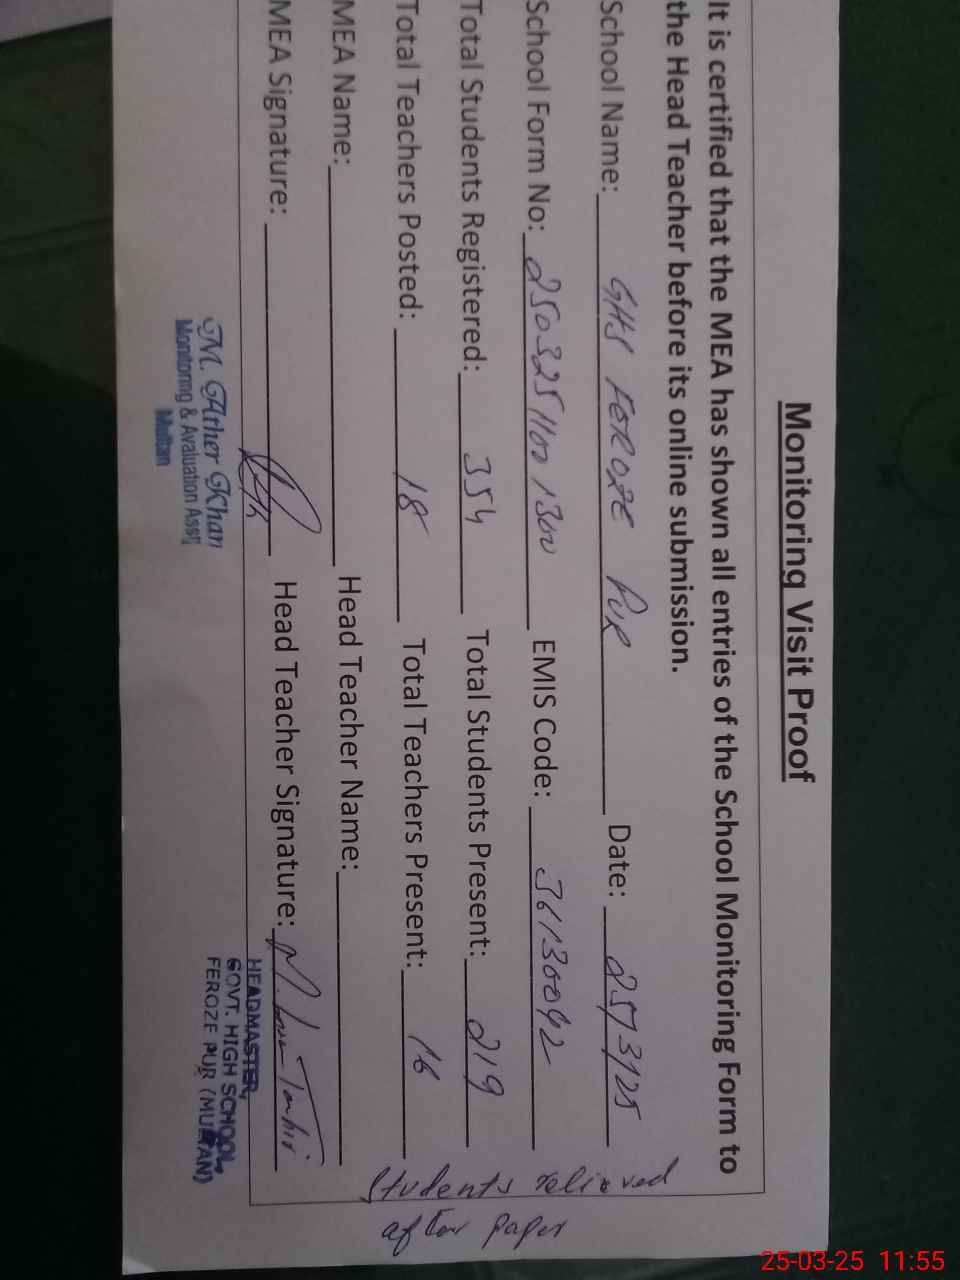 Monitoring Visit Proof
It is certified that the MEA has shown all entries of the School Monitoring Form to
the Head Teacher before its online submission.
School Name: GHS FEROZE PUR Date: 25/3/25
School Form No: 250325 1100 1300 EMIS Code: 36130092
Total Students Registered: 354 Total Students Present: 219
Total Teachers Posted: 18 Total Teachers Present: 16
MEA Name: Head Teacher Name:
MEA Signature: Head Teacher Signature:
Students relieved
after paper
M. Ather Khan
Monitoring & Evaluation Asstt
Multan
HEADMASTER,
GOVT. HIGH SCHOOL,
FEROZE PUR (MULTAN)
25-03-25 11:55